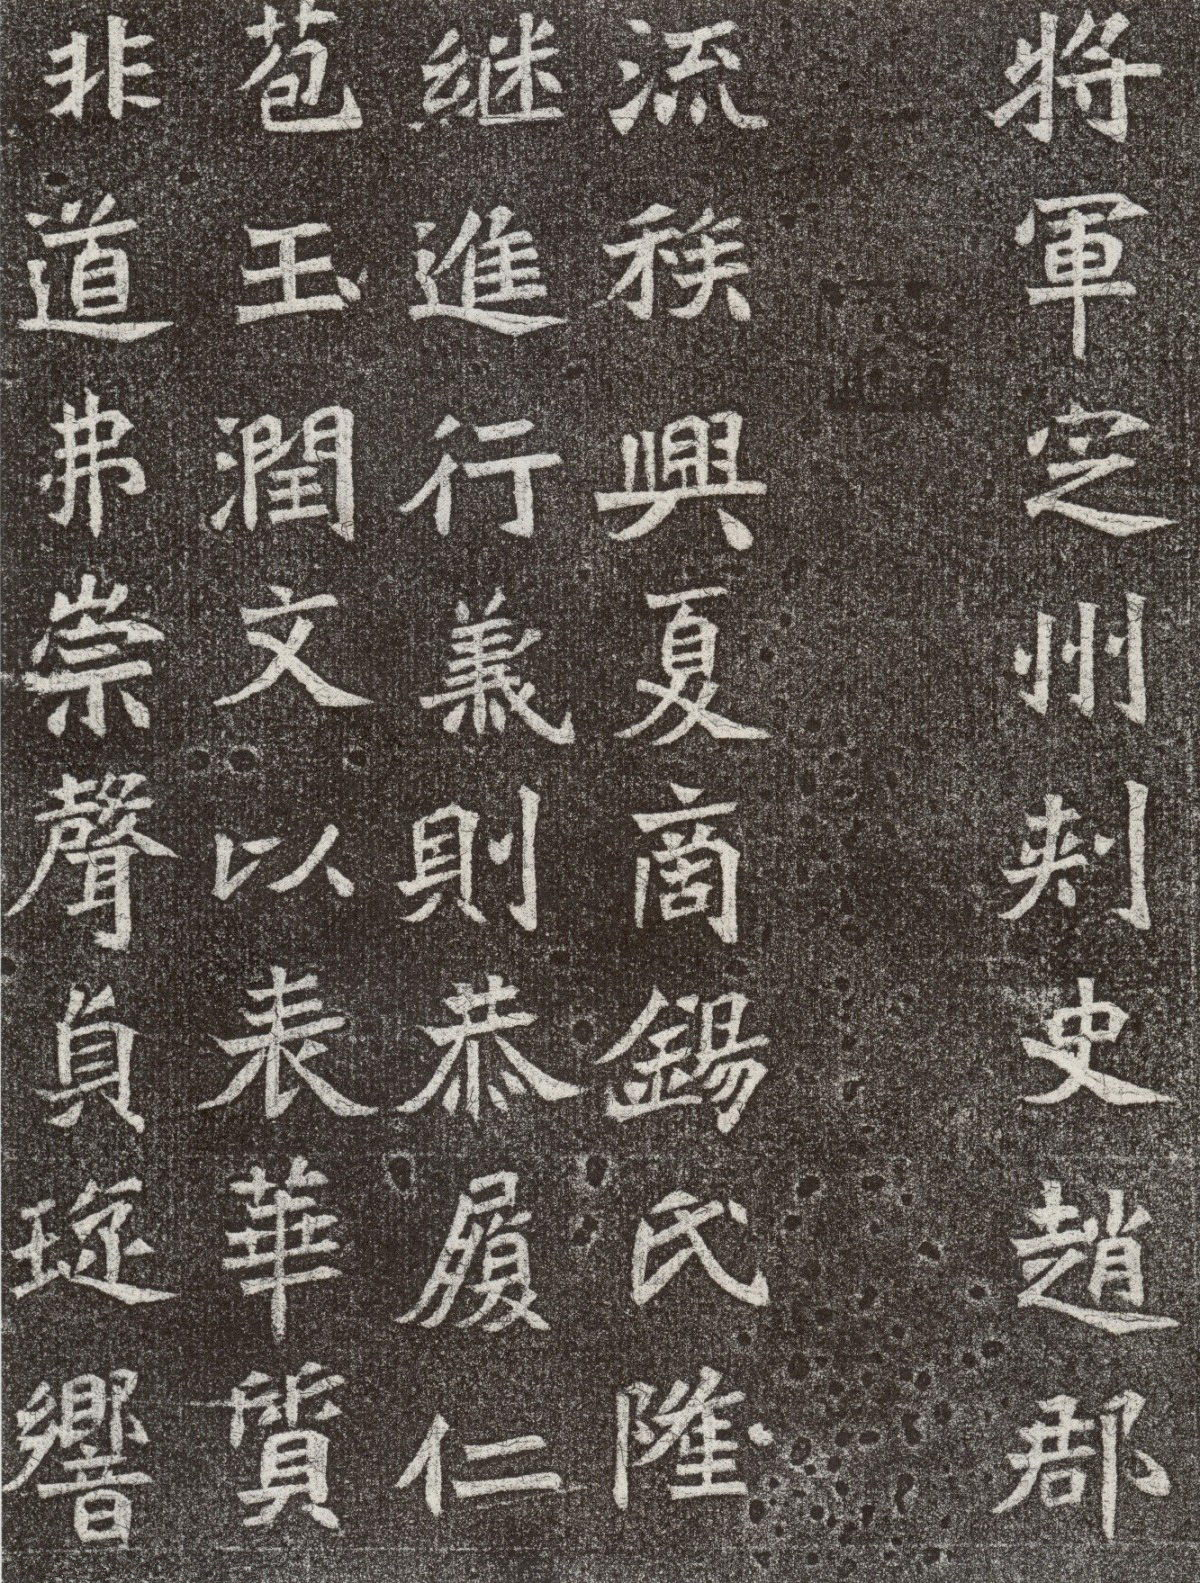 將軍定州刺史趙郡
流族興夏商錫氏隆
継進行義則恭履仁
苞玉潤文以表華質
非道弗崇聲貞琁響